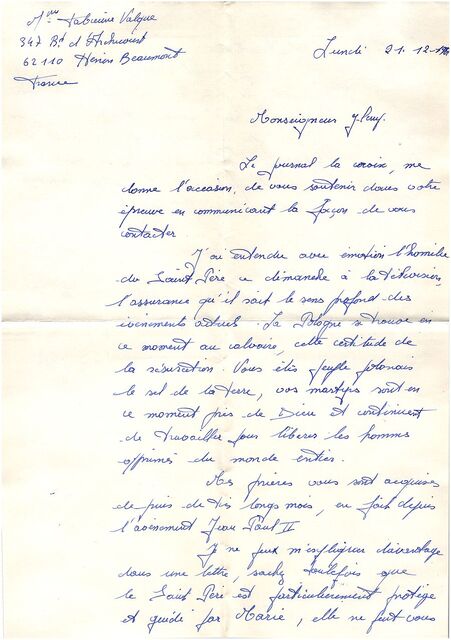 Mme Fabienne Valque
347 Bd d'
62110 Hénin Beaumont
France
Lundi 21-12-
Monseigneur
Le journal la croix, me
donne l'occasion, de vous soutenir dans votre
épreuve en communicant la façon de vous
contacter
J'ai entendu avec émotion l'homélie
du Saint Père ce dimanche à la télévision,
l'assurance qu'il sait le sens profond des
évènements actuels. La Pologne se trouve en
ce moment au calvaire, cette certitude de
la résurection. Vous êtes peuple polonais
le sel de la terre, vos martyrs sont en
ce moment près de Dieu et continuent
de travailler pour libérer les hommes
opprimés du monde entier.
Mes prières vous sont acquises
depuis de très longs mois, en fait depuis
l'avènement Jean Paul II
Je ne peux m'expliquer davantage
dans une lettre, sachez toutefois que
le Saint Père est particulièrement protégé
et guidé par Marie, elle ne peut vous